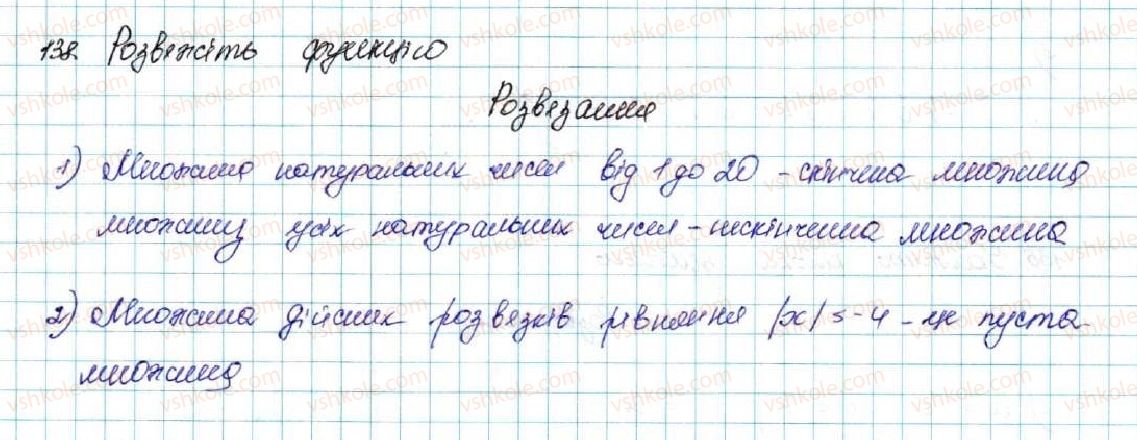 138. Розвяжіть функцію
Розвязання
1) Множина натуральних чисел від 1 до 20 - скінчена множина
множину усіх натуральних чисел - нескінченна множина
2) Множина дійсних розвязків рівняння |x| = -4 - це пуста
множина